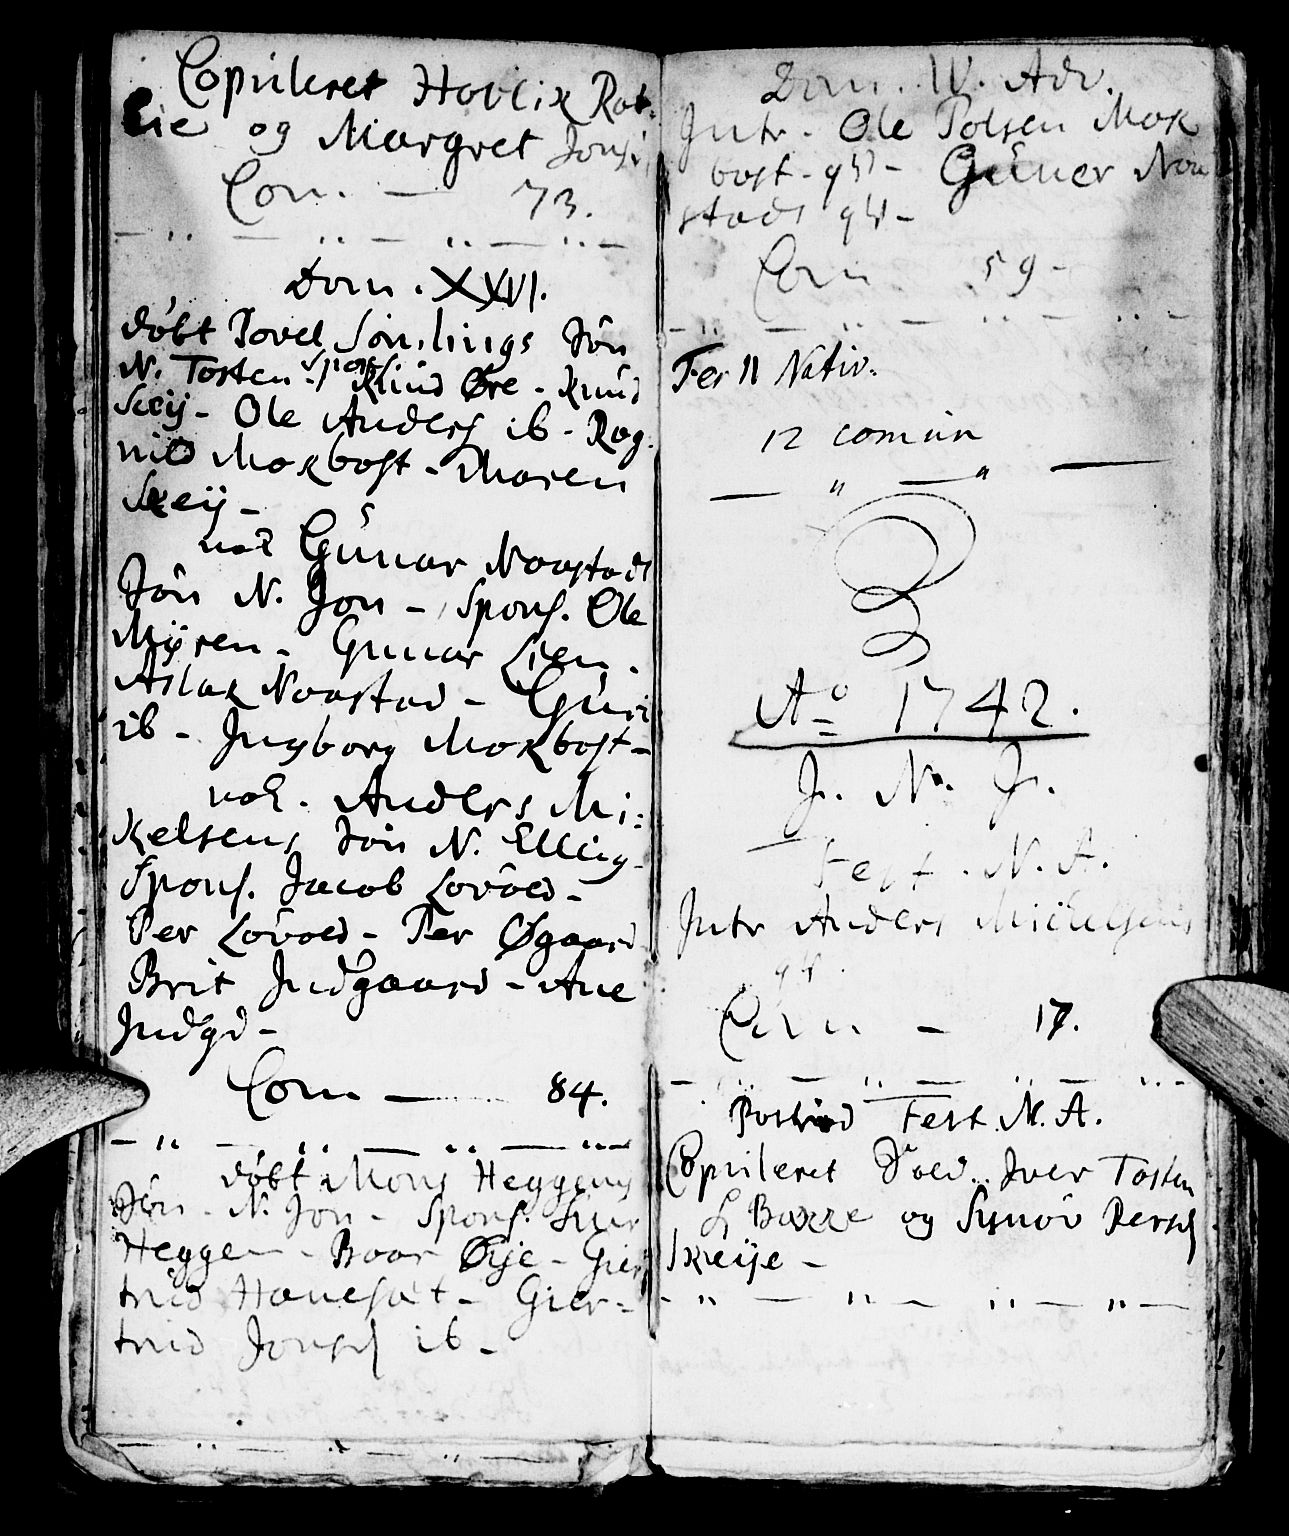 Copuleret Havlik Rot-
lie og Margret Jonsd
Com. — 73.
Dom. XXVI.
døbt Povel Sønlings Søn
N. Tosten - spons Knud Øre - Knud
Skeij - Ole Anders ib - Rag
nild Mokbost - Maren
Skeij -
nok Gunar Naastads
Søn N. Jon - Spons. Ole
Mÿren - Gunar Lien.
Aslak Naastad - Guri
ib - Ingborg Mokbost -
nok. Anders Mi:
kelsens Søn N. Elling -
Spons. Jacob Lovoed -
Per Lovoed - Per Øgaard
Brit Indgaard - Ane
Indgd -
Com — 84.
døbt Mons Heggens
Søn - N. Jon - Spons. Siur
Heggen - Baar Øije - Gier
trud Hanesæt - Gier-
trud Jonsd ib -
Dom. IV. Adv.
Intr. Ole Polsen Mok
bost - qv - Guner Nou
stads qv -
Com 59 -
Fer II Nativ.
12 comun
Ao 1742.
J. N. J.
Fest. N. A.
Intr Anders Mickelsens
qv.
Com — 17.
Postrid Fest. N. A.
Copuleret Soed. Iver Tosten
S Bakke og Synøv Persd
Skeije -